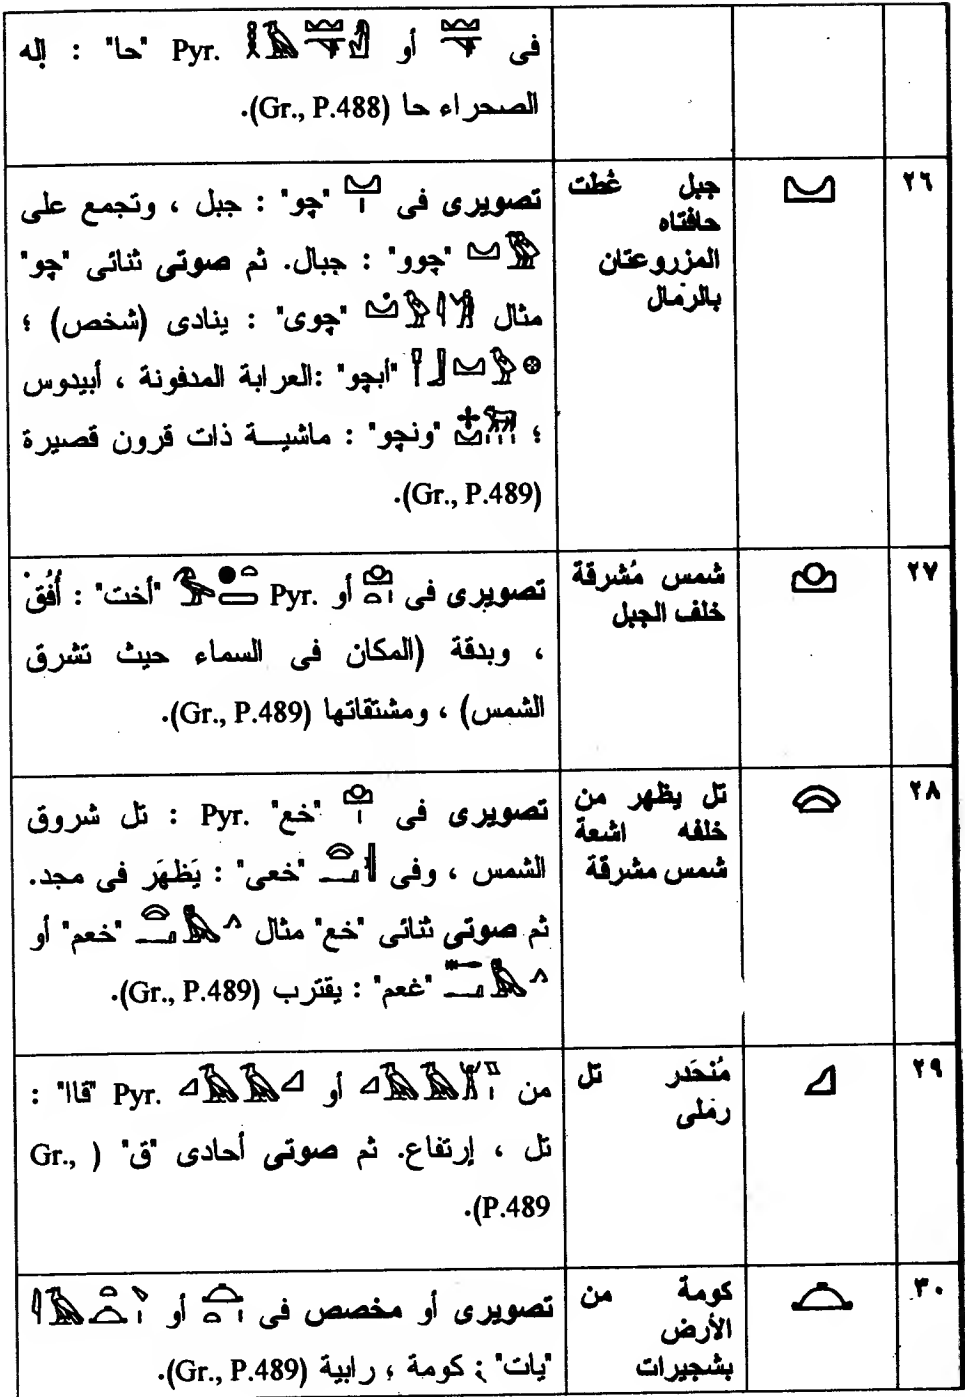 فى أو Pyr. "حا" : إله
الصحراء حا (Gr., P.488).
٢٦
جبل غطت
حافتاه
المزروعتان
بالرمال
تصويرى فى "چو" : جبل ، وتجمع على
"چوو" : جبال. ثم صوتى ثنائى "چو"
مثال "چوى" : ينادى (شخص) ؛
"أبچو" :العرابة المدفونة ، أبيدوس
؛ "ونچو" : ماشيـــة ذات قرون قصيرة
(Gr., P.489).
٢٧
شمس مُشرقة
خلف الجبل
تصويرى فى أو Pyr. "أخت" : أُفُقْ
، وبدقة (المكان فى السماء حيث تشرق
الشمس) ، ومشتقاتها (Gr., P.489).
٢٨
تل يظهر من
خلفه اشعة
شمس مشرقة
تصويرى فى "خع" Pyr. : تل شروق
الشمس ، وفى "خعى" : يَظهَر فى مجد.
ثم صوتى ثنائى "خع" مثال "خعم" أو
"غعم" : يقترب (Gr., P.489).
٢٩
مُنْحَدر تل
رملى
من أو Pyr. "قاا" :
تل ، إرتفاع. ثم صوتى أحادى "ق" ( Gr.,
P.489).
٣٠
كومة من
الأرض
بشجيرات
تصويرى أو مخصص فى أو
"يات" ; كومة ، رابية (Gr., P.489).